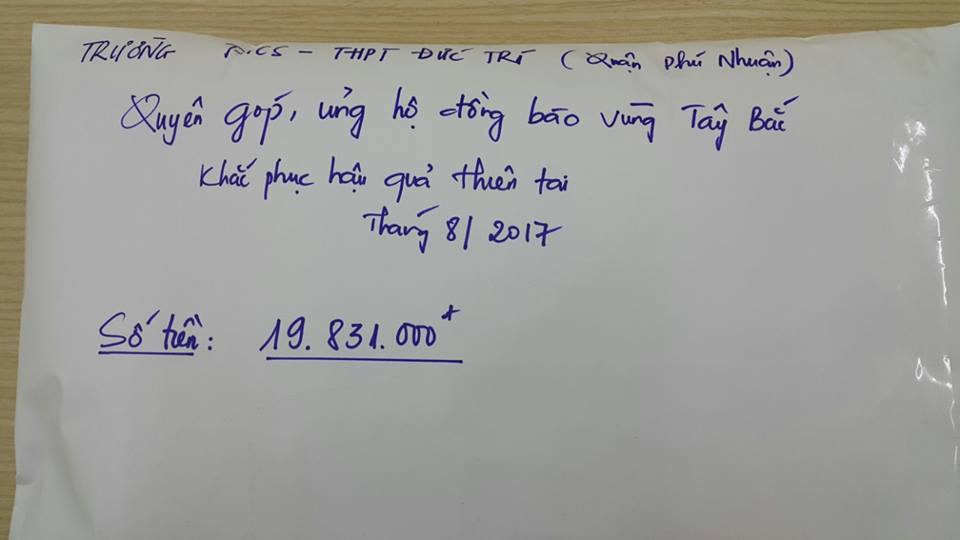 TRƯỜNG THCS - THPT ĐỨC TRÍ (Quận Phú Nhuận)
Quyên góp, ủng hộ đồng bào vùng Tây Bắc
Khắc phục hậu quả thiên tai
Tháng 8/2017
Số tiền: 19.831.000đ